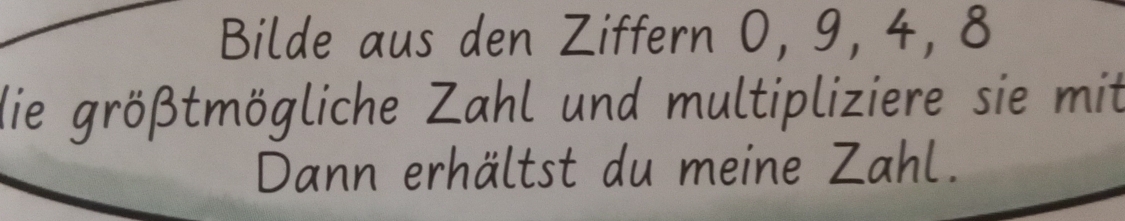 Bilde aus den Ziffern 0, 9, 4, 8
die größtmögliche Zahl und multipliziere sie mit
Dann erhältst du meine Zahl.